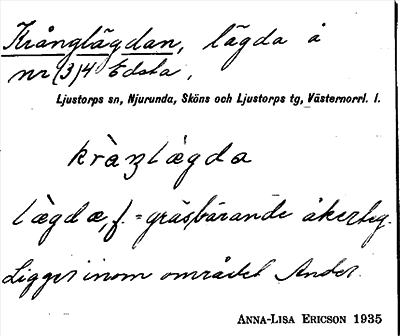 Krånglägdan, lägda å
nr (3) 4 Edsta,
Ljustorps sn, Njurunda, Sköns och Ljustorps tg, Västernorrl. l.
lägdæ, f. = gräsbärande åkerteg.
Ligger inom området Andes.
ANNA-LISA ERICSON 1935